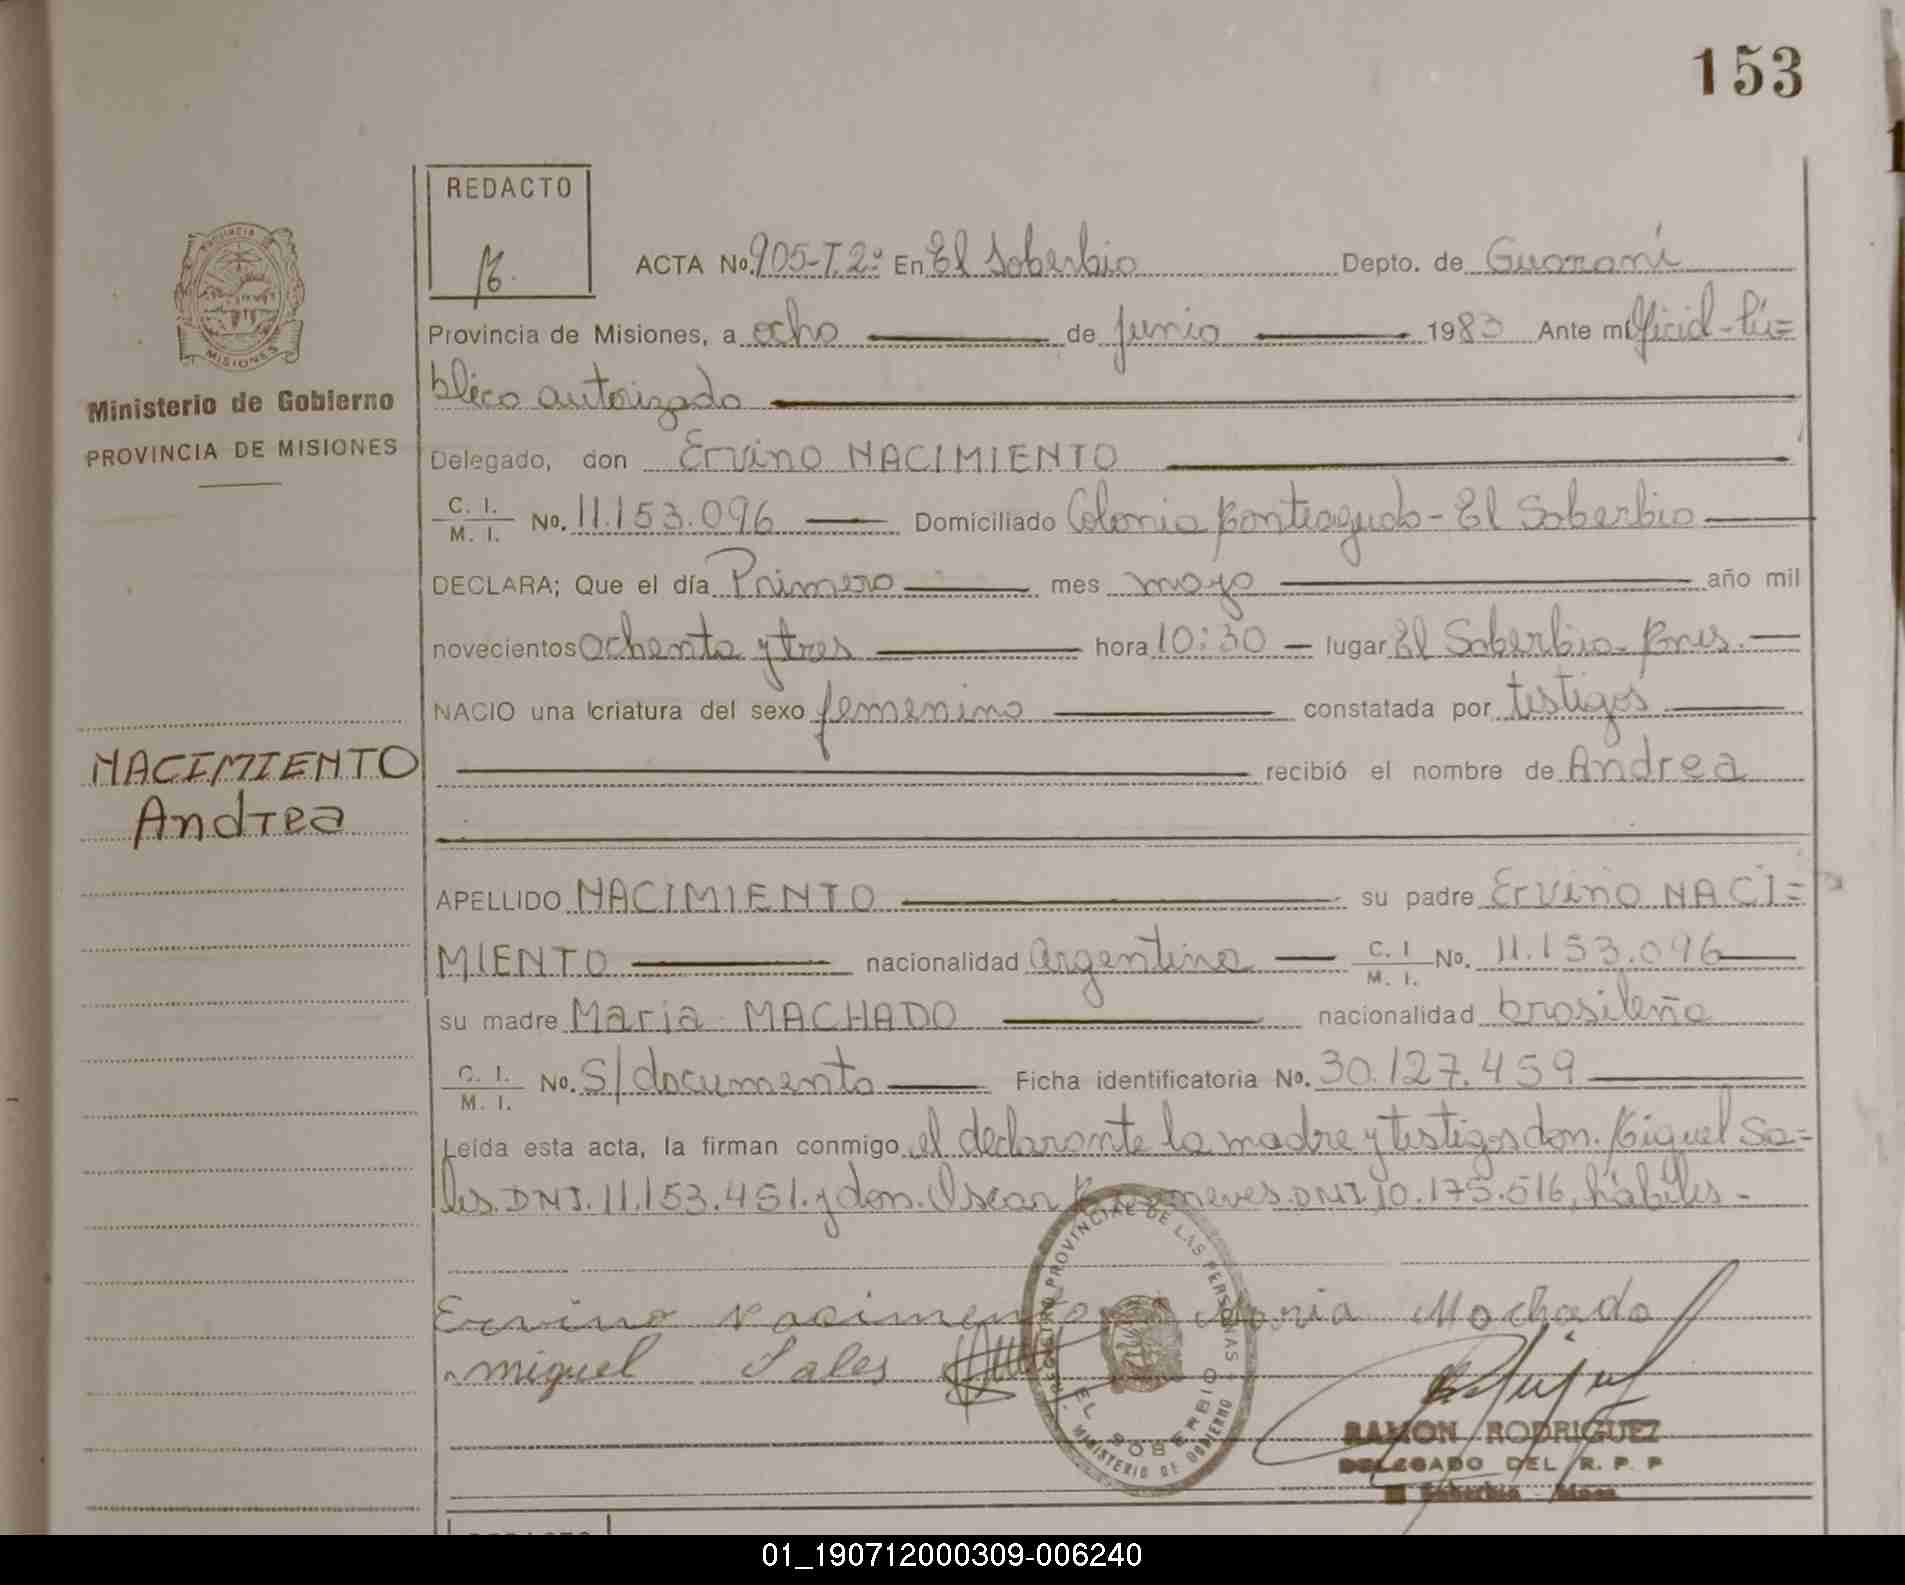 153
REDACTO
ACTA No. 905-T.2º En El Soberbio Depto. de Guarani
Provincia de Misiones, a ocho de junio 1983 Ante mi Oficial-Pú=
blico autorizado
Ministerio de Gobierno
PROVINCIA DE MISIONES
MISIONES
Delegado, don Ervino NACIMIENTO
C. I. No. 11.153.096 Domiciliado Colonia Monteagudo - El Soberbio
M. I.
DECLARA; Que el día Primero mes mayo año mil
novecientos ochenta y tres hora 10:30 lugar El Soberbio-Mnes.
NACIO una criatura del sexo femenino constatada por testigos
NACIMIENTO
recibió el nombre de Andrea
Andrea
APELLIDO NACIMIENTO su padre Ervino NACI=
MIENTO nacionalidad Argentina C. I No. 11.153.096
M. I.
su madre Maria MACHADO nacionalidad brasileña
C. I. No. S/documento Ficha identificatoria No. 30.127.459
M. I.
Leída esta acta, la firman conmigo el declarante la madre y testigos don. Miguel Sa=
les. DNI. 11.153.451. y don. Oscar DNI 10.175.516, hábiles-
Ervino Nacimento Maria Machado
miguel Sales
REGISTRO PROVINCIAL DE LAS PERSONAS
EL SOBERBIO
MINISTERIO DE GOBIERNO
RAMON RODRIGUEZ
DELEGADO DEL R. P. P
El Soberbio - Mnes.
REDACTO
01_190712000309-006240